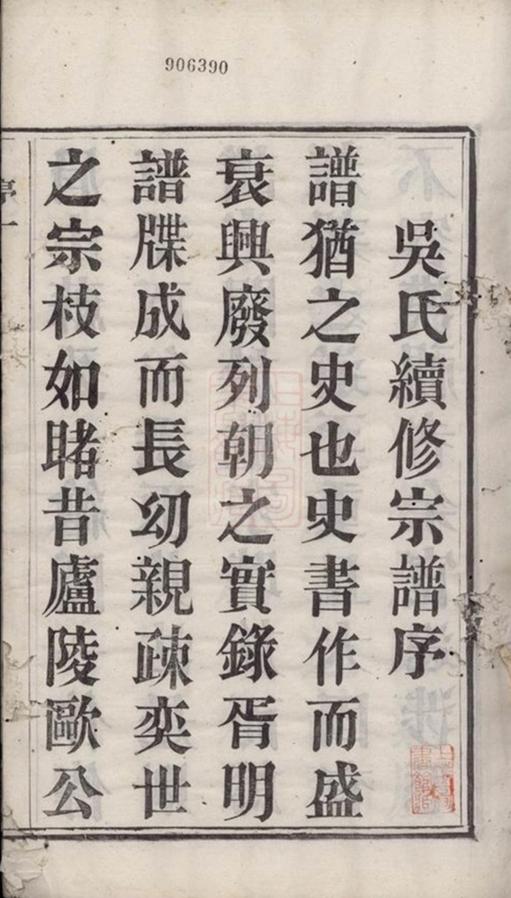 906390
吳氏續修宗譜序
譜猶之史也史書作而盛
衰興廢列朝之實錄胥明
譜牒成而長幼親疎奕世
之宗枝如睹昔廬陵歐公